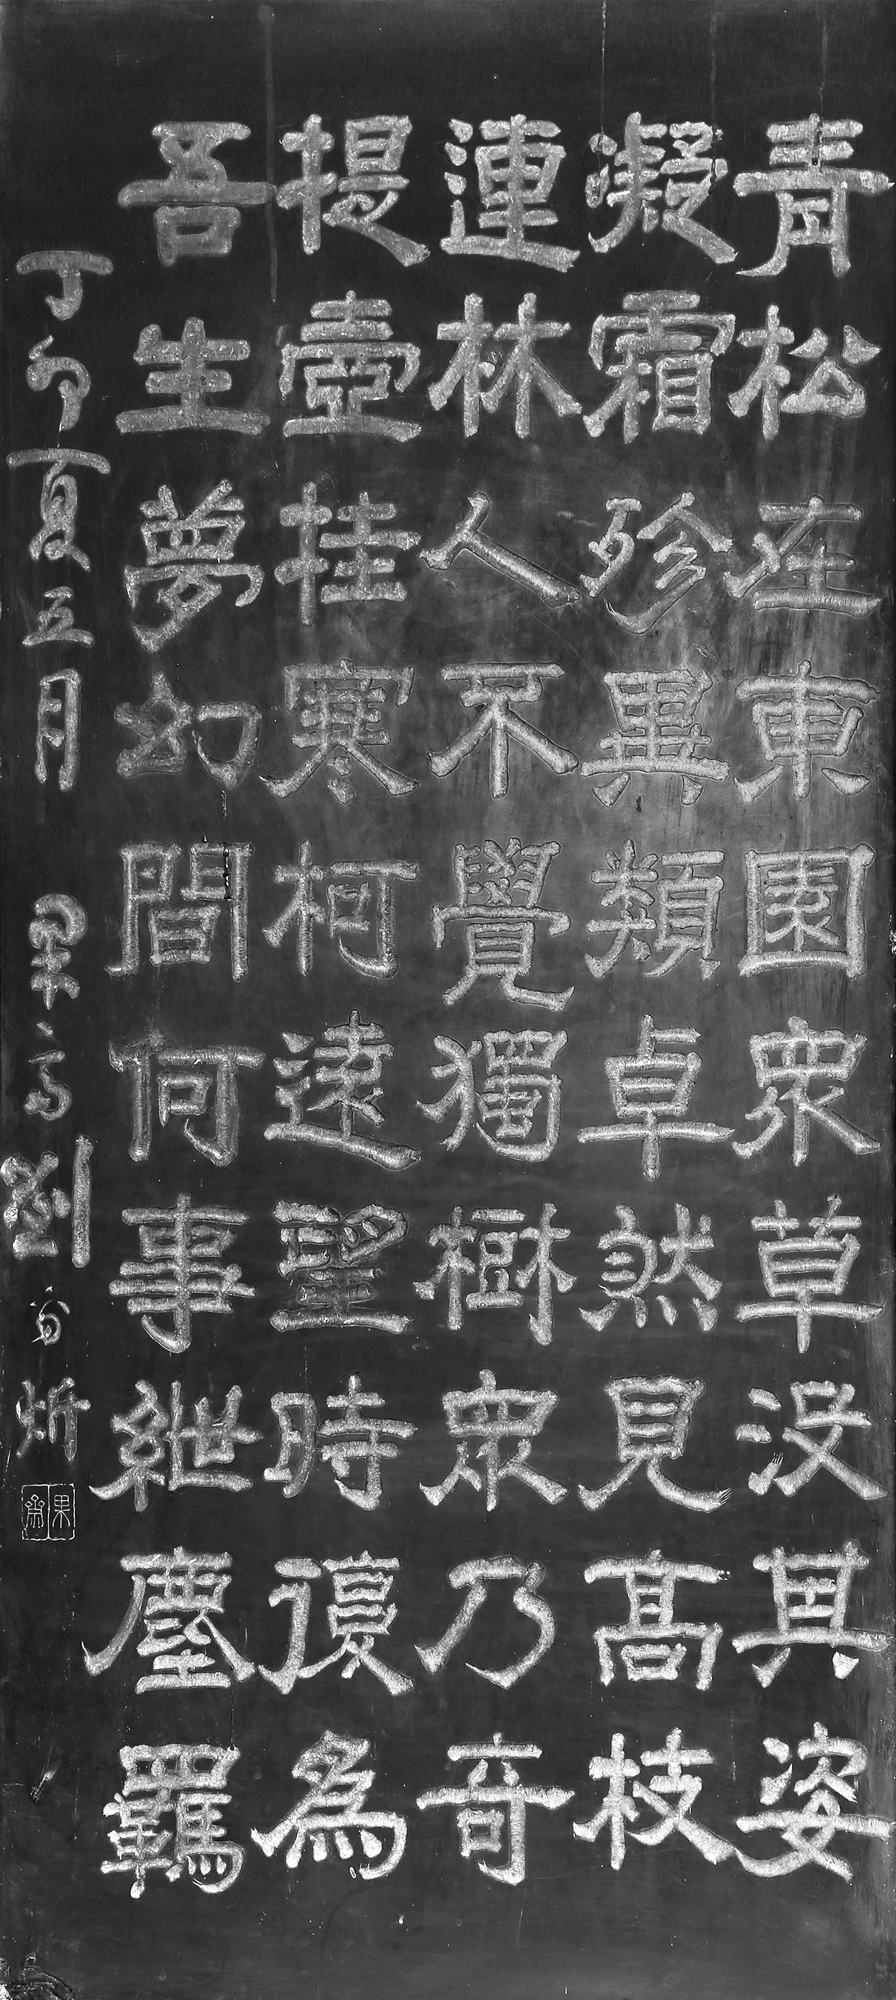 青松在東園眾草沒其姿
凝霜殄異類卓然見高枝
連林人不覺獨樹眾乃奇
提壺挂寒柯遠望時復為
吾生夢幻間何事紲塵羈
丁卯夏五月 果齋劉爾炘
果齋